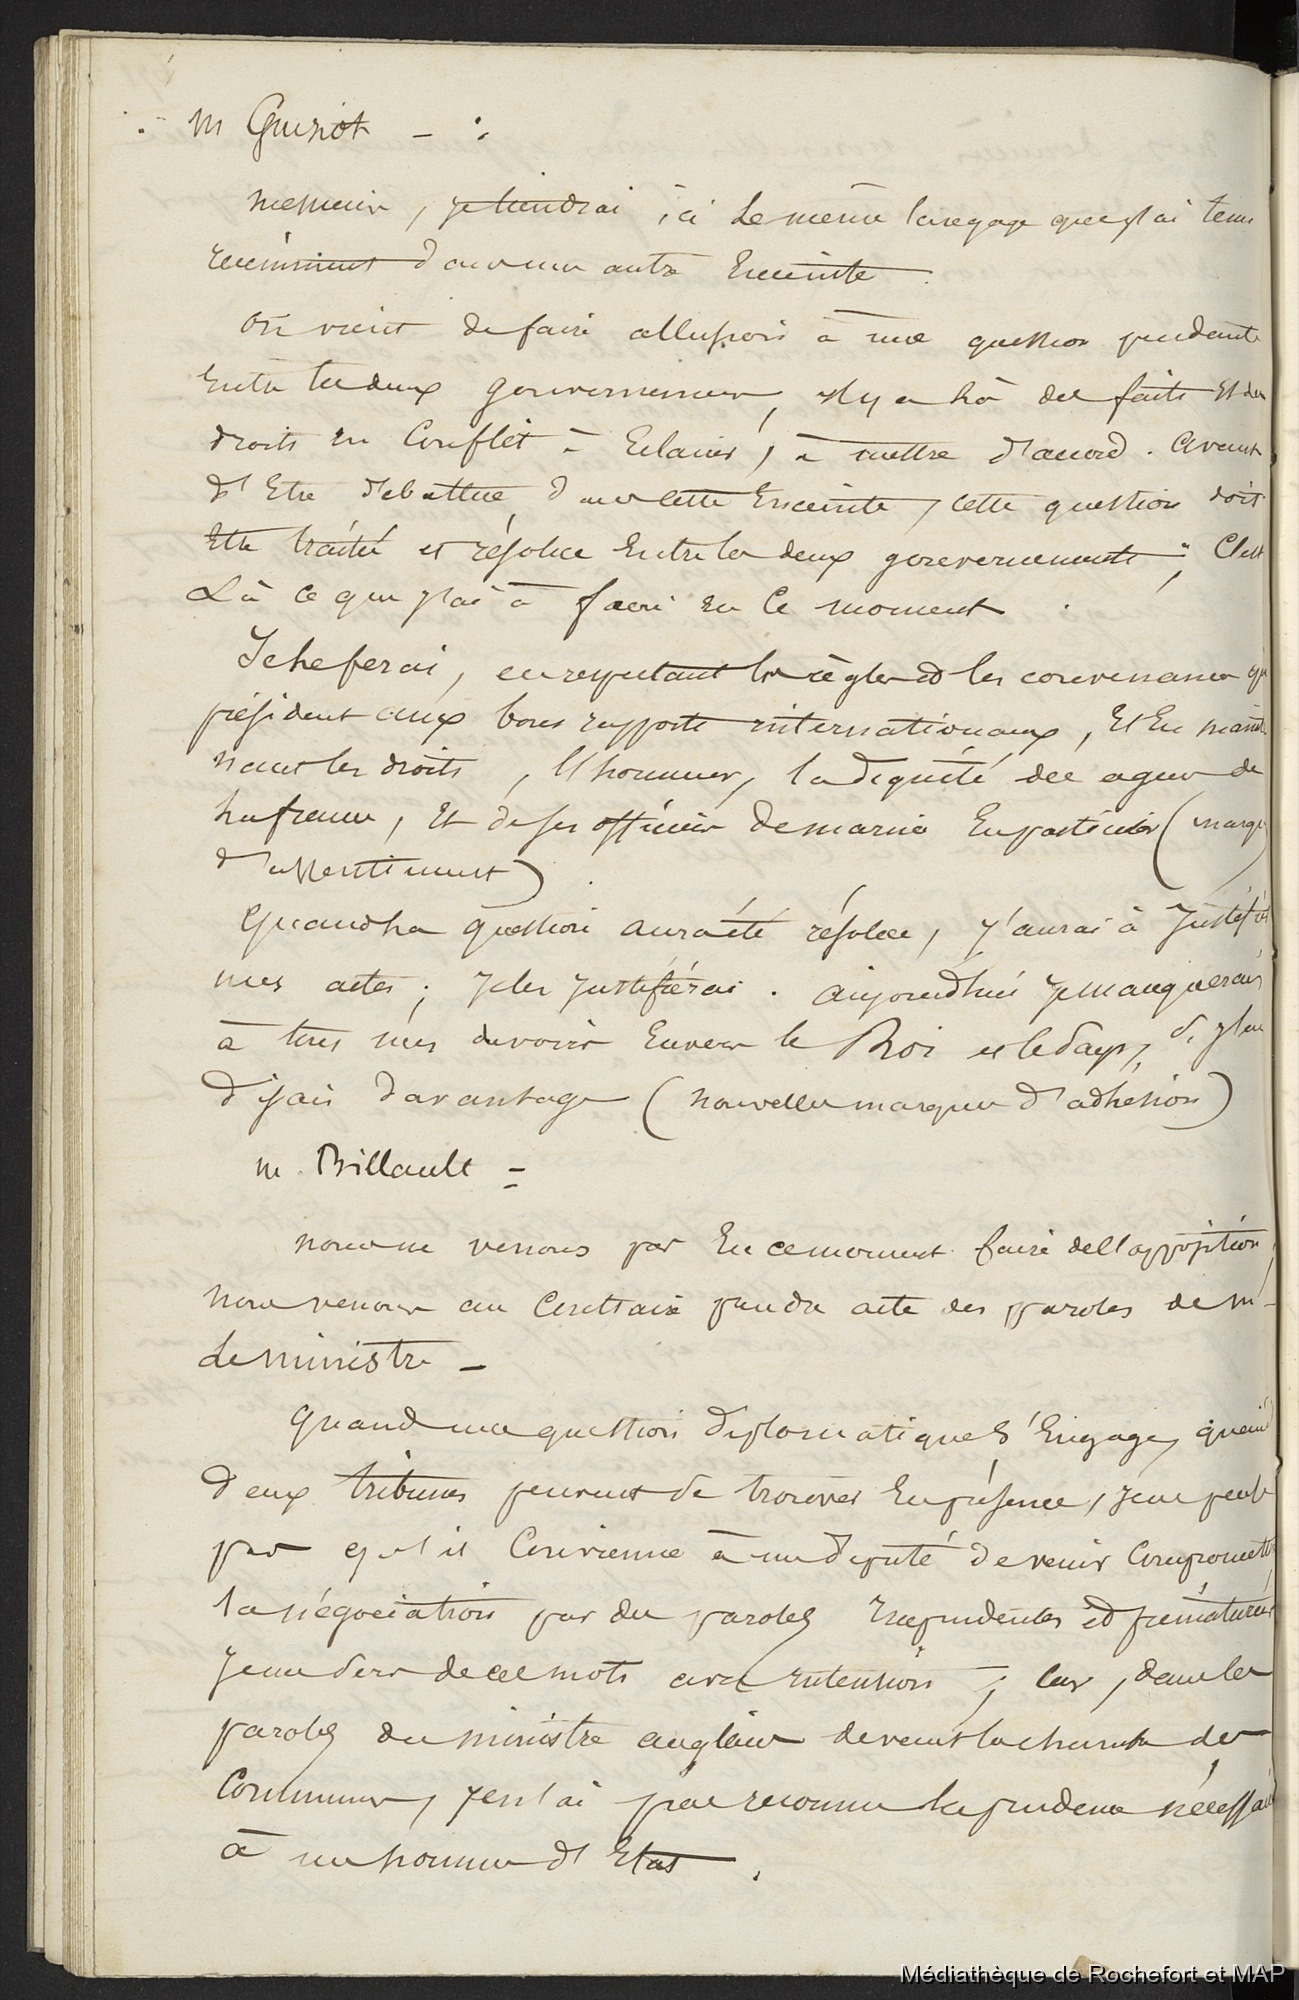 m Guiziot - :
messieurs, je tiendrai ici le même langage que j'ai tenu
récemment dans une autre Enceinte.
On vient de faire allusion à une question pendante
Entre les deux gouvernemens, il y a là des faits et des
droits en Conflit à Eclairer, à mettre d'accord. Avant
d'Etre débattue, dans cette Enceinte, cette question doit
Etre traitée et résolue Entre les deux gouvernements; C'est
Là ce que j'ai à faire en Ce moment.
Je le ferai, en respectant les règles et les convenances qui
président aux bons rapports internationaux, Et En mainte
nant les droits, l'honneur, la dignité des agens de
la france, Et de ses officiers de marine En particulier (marque
d'assentiment).
Quand la question aura été résolue, j'aurai à Justifier
mes actes; je les justifierai. aujourd'hui je manquerais
à tous mes devoirs Envers le Roi et le pays, si j'en
disais davantage (nouvelles marques d'adhésion)
m. Billault =
nous ne venons pas En ce moment faire de l'opposition,
nous venons au Contraire prendre acte des paroles de m.
Le ministre -
Quand une question diplomatique S'Engage, quand
deux tribunes peuvent se trouver En présence, je ne pense
pas qu'il Convienne à un député de venir Compromettre
la négociation par des paroles imprudentes et prématurées
je me sers de ces mots avec intention; Car, dans les
paroles du ministre anglais devant la chambre des
Communes, je n'ai pas reconnu la prudence nécessaire
à un homme d'Etat.
Médiathèque de Rochefort et MAP